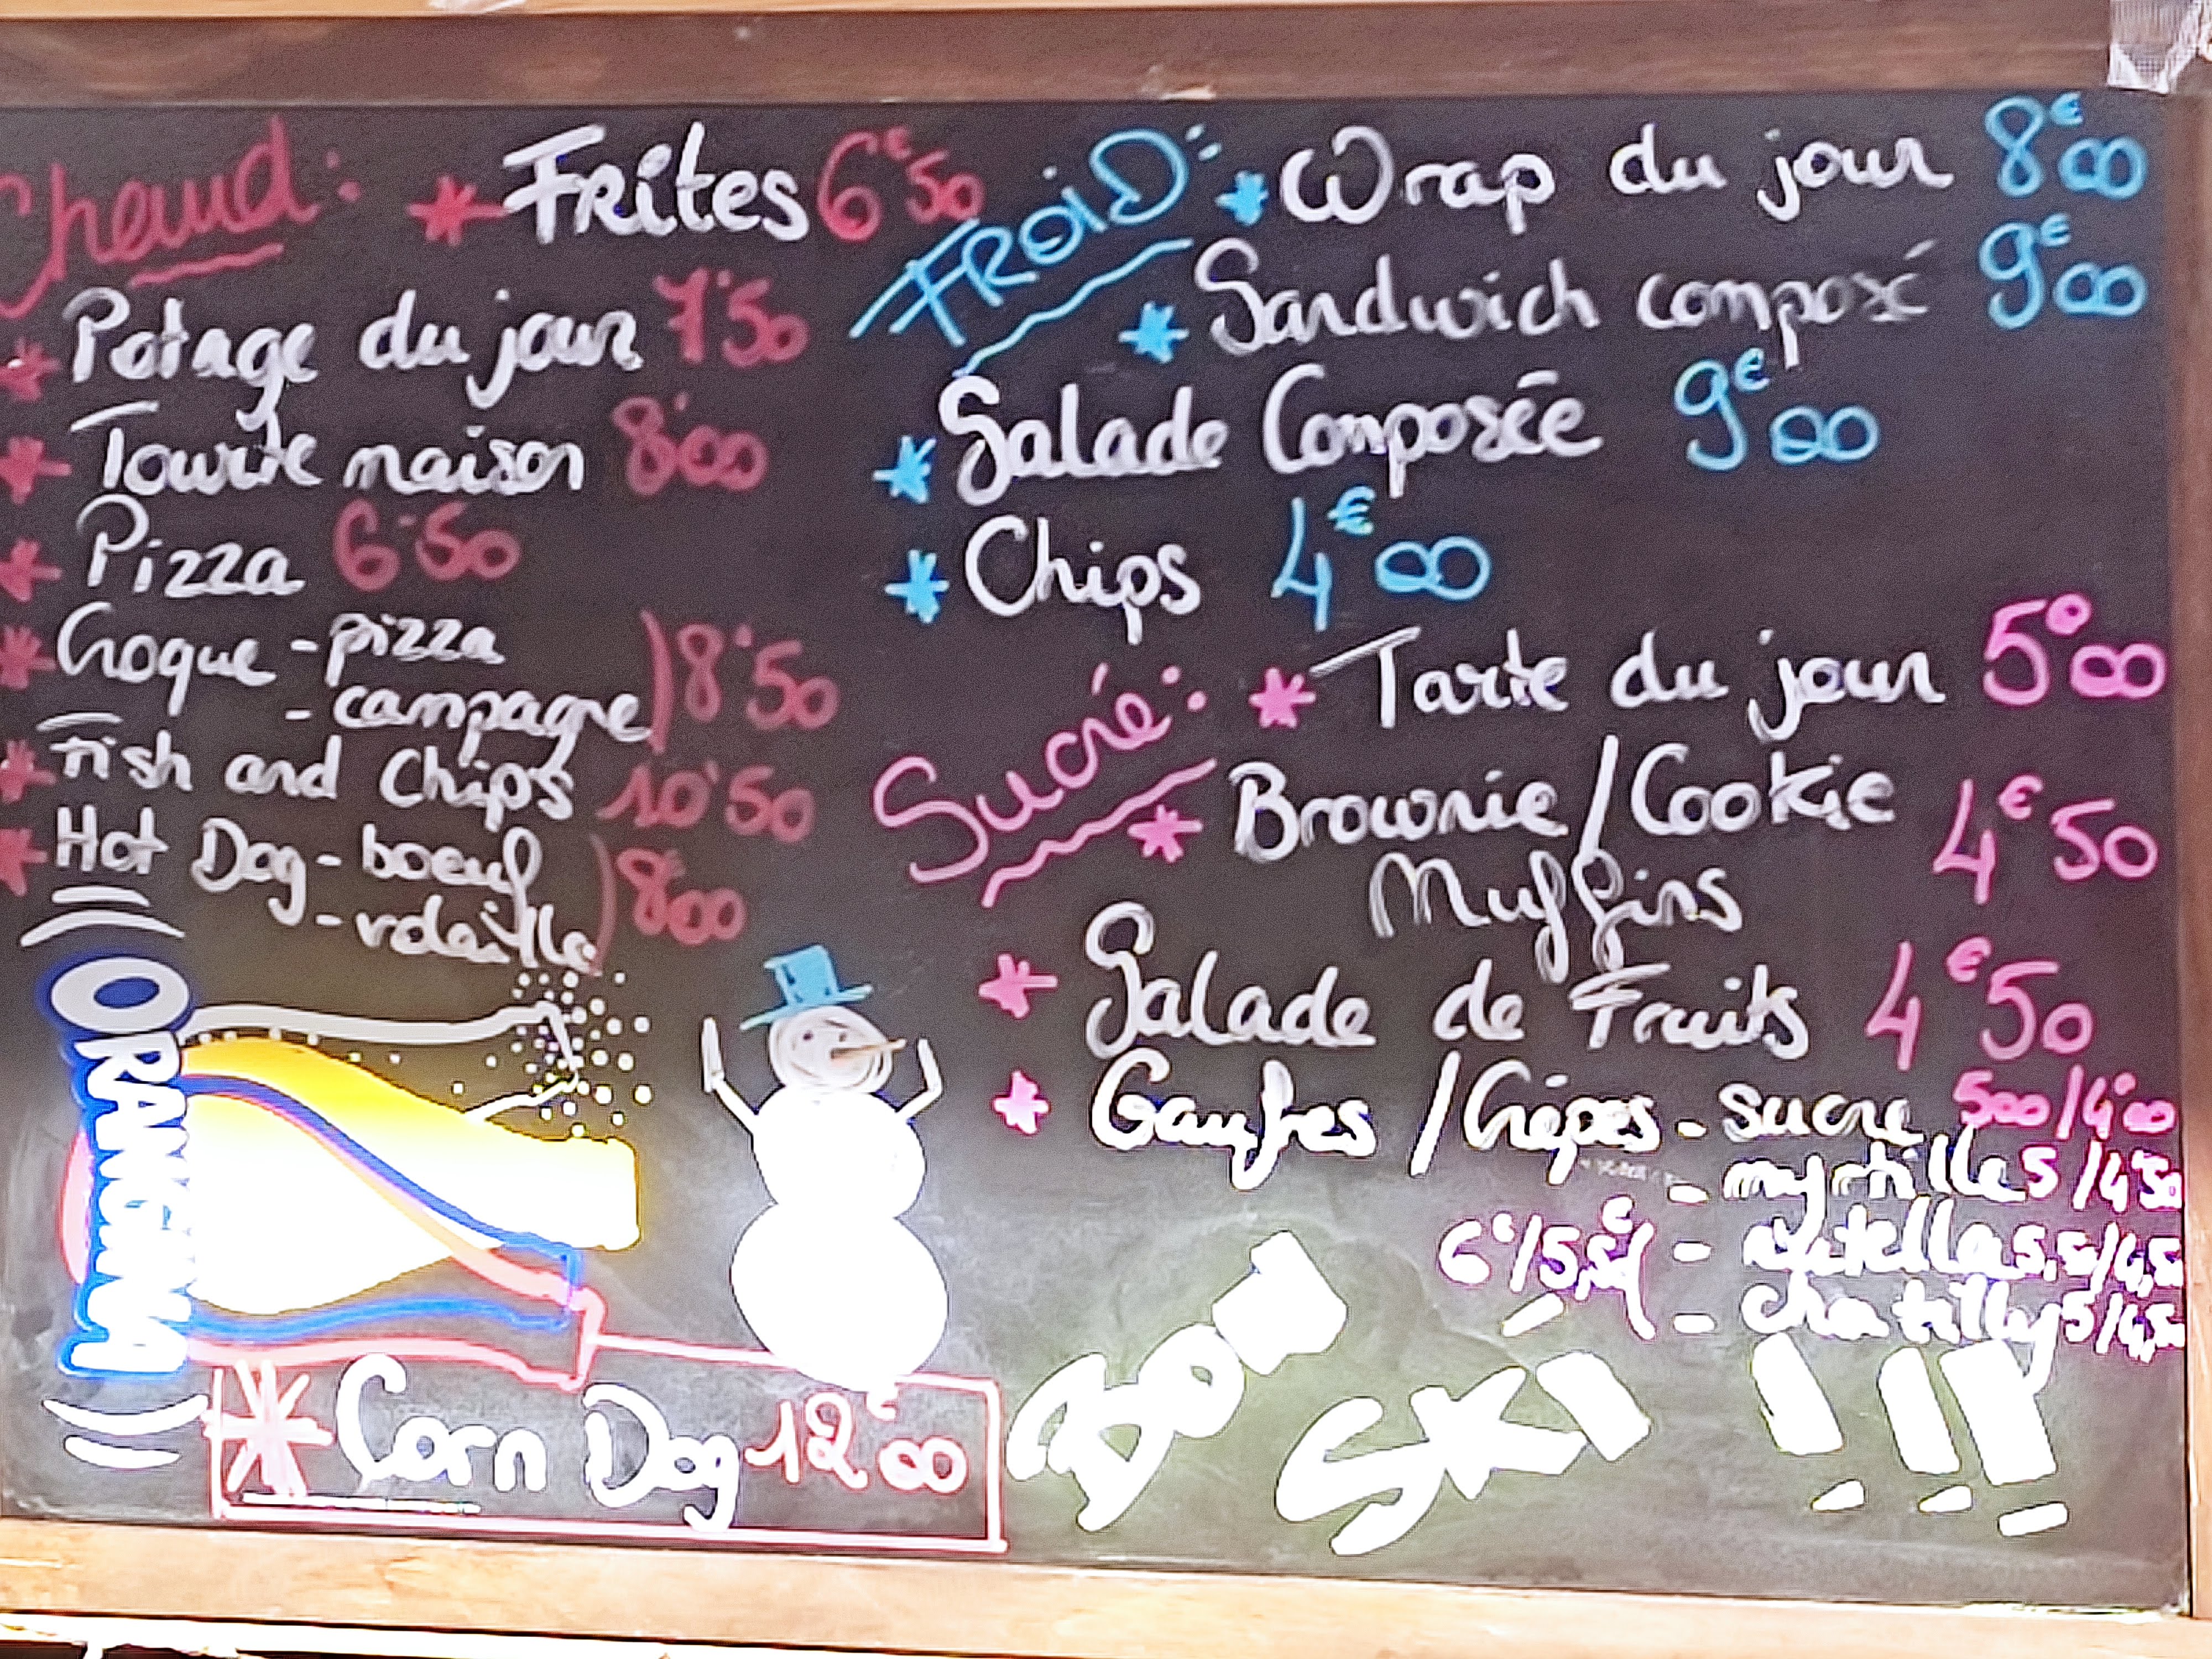 Chaud :
* Frites 6€50
* Potage du jour 7€50
* Tourte maison 8€00
* Pizza 6€50
* Croque - pizza
- campagne ) 8€50
* Fish and Chips 10€50
* Hot Dog - boeuf
- volaille ) 8€00
ORANGINA
* Corn Dog 12€00
FROID :
* Wrap du jour 8€00
* Sandwich composé 9€00
* Salade Composée 9€00
* Chips 4€00
Sucré :
* Tarte du jour 5€00
* Brownie / Cookie 4€50
Muffins
* Salade de Fruits 4€50
* Gaufres / Crêpes - sucre 5€00 / 4€00
- myrtille 5 / 4€50
6€ / 5,50 - nutella 5,5 / 4,50
- chantilly 5 / 4,50
BON SKI !!!